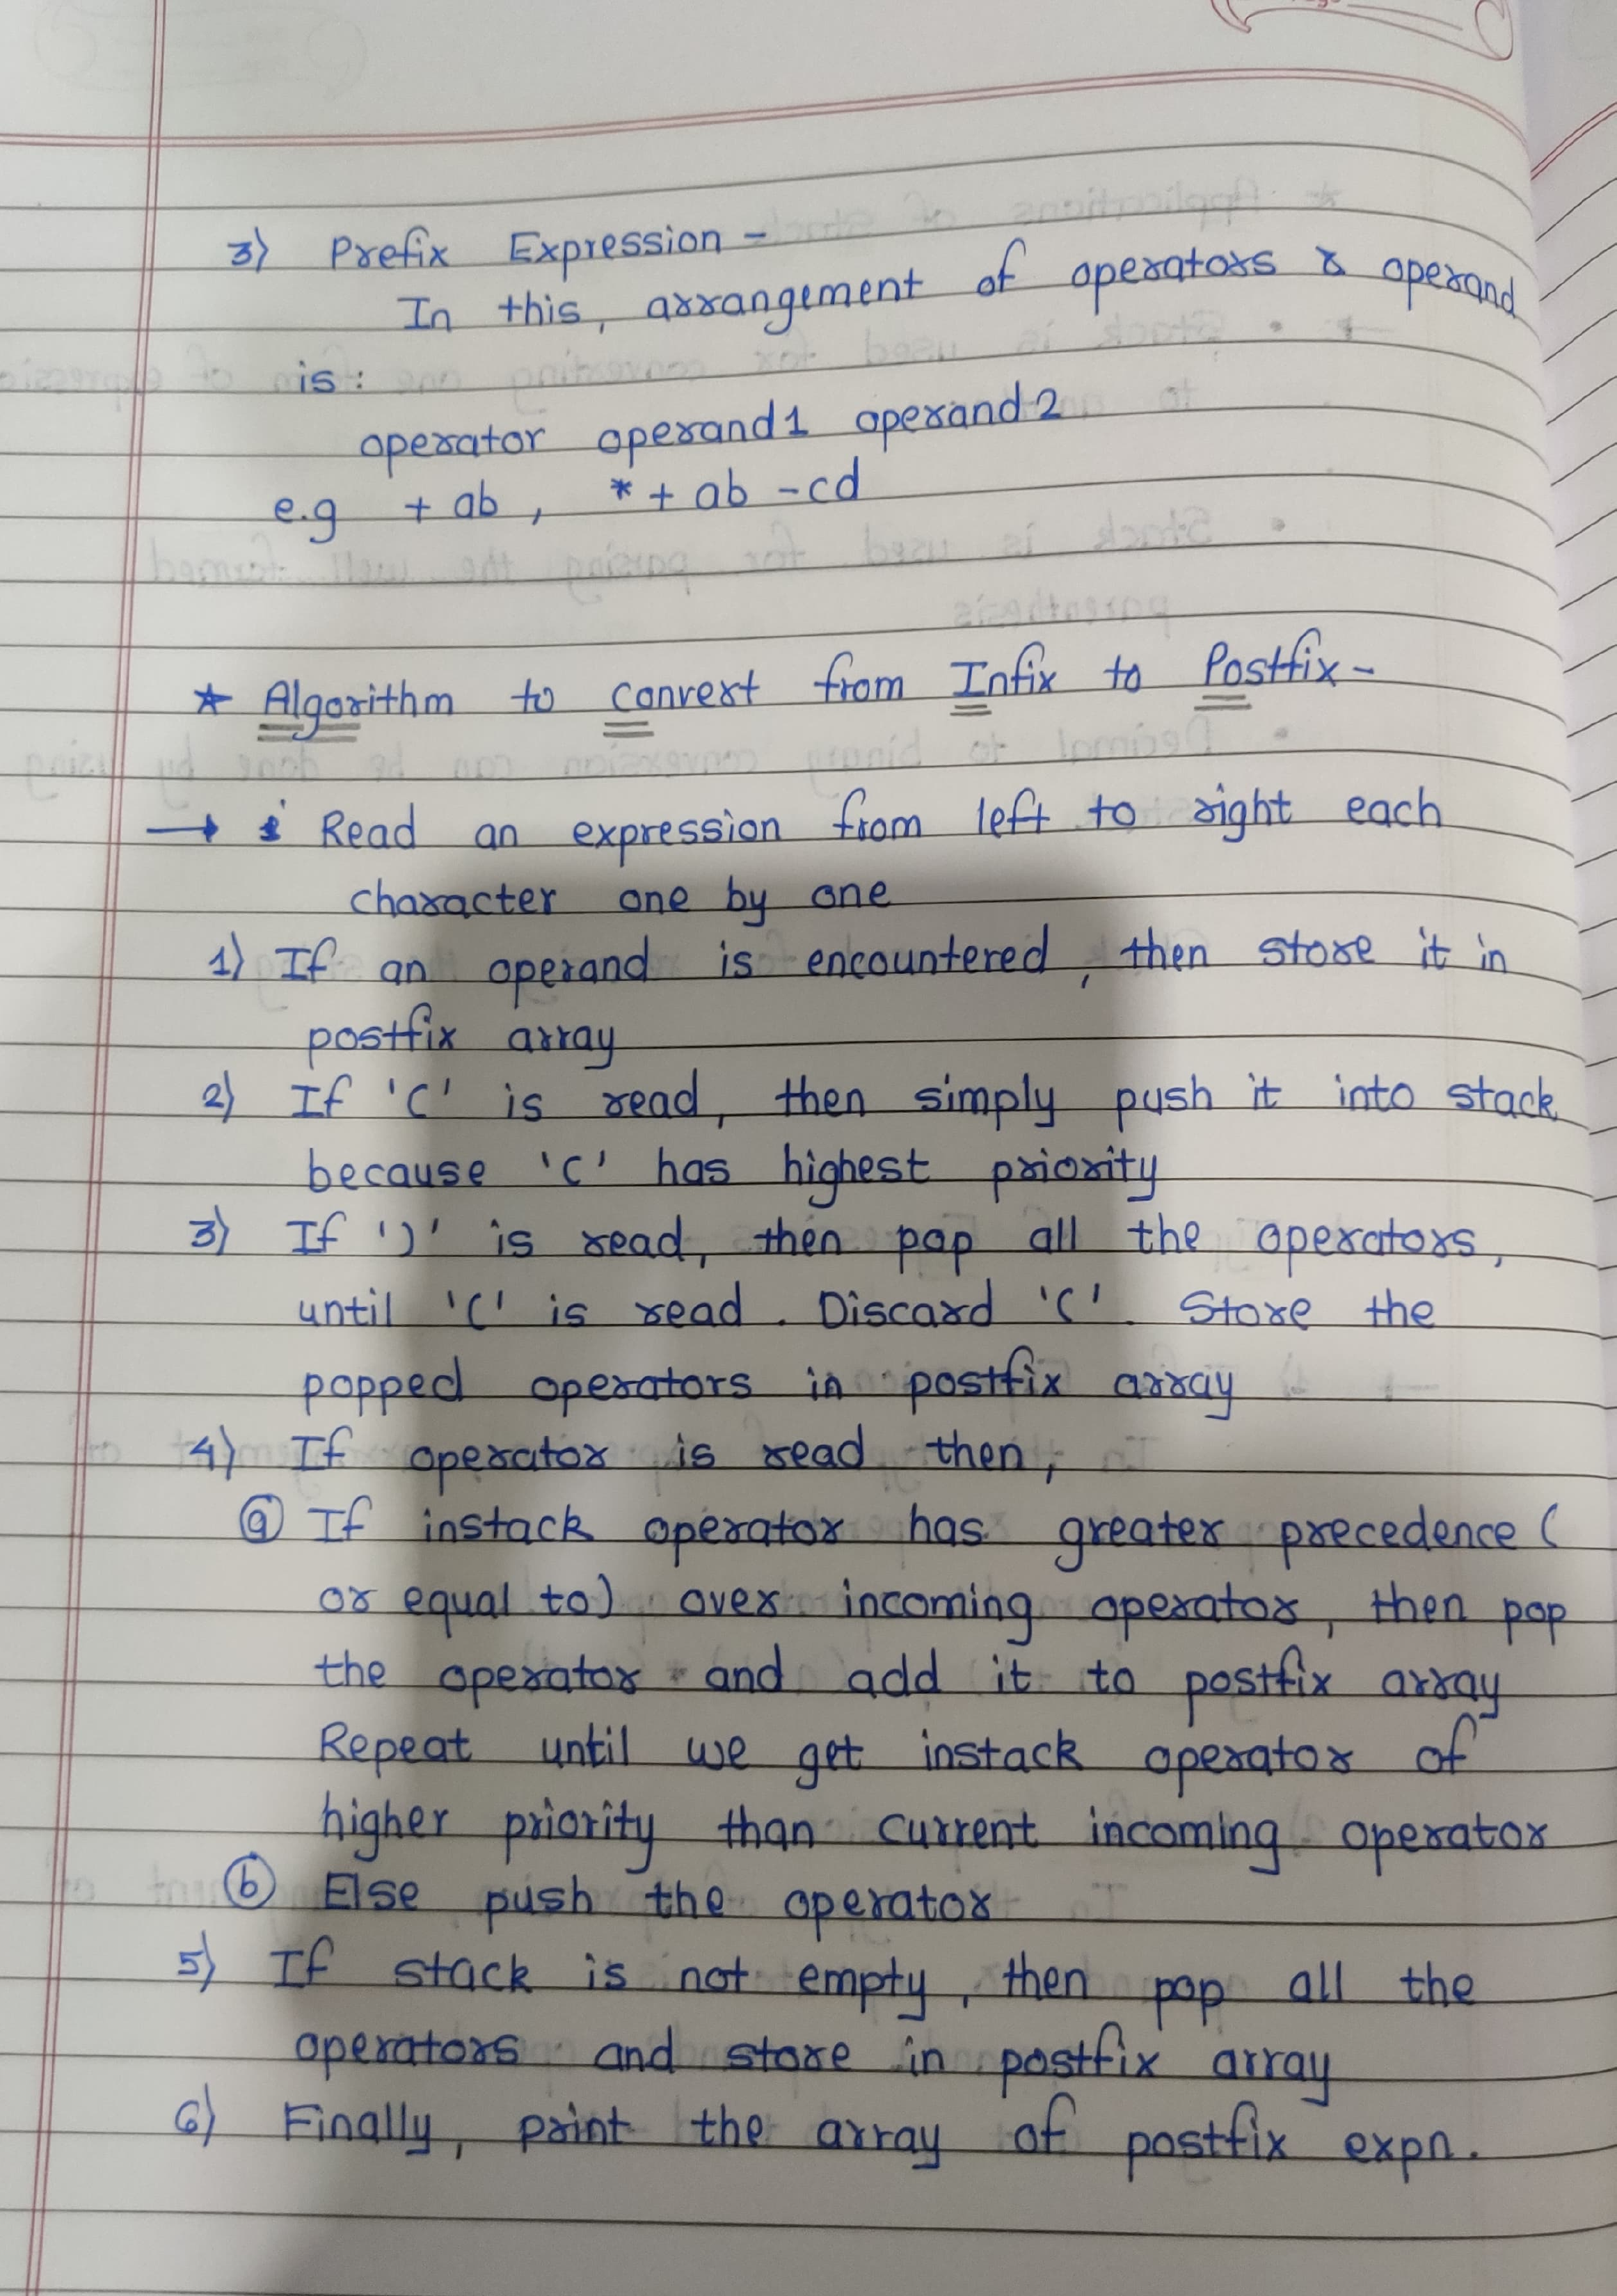 3) Prefix Expression -
In this, arrangement of operators & operand
is :
operator operand1 operand2
e.g + ab , * + ab - cd
* Algorithm to convert from Infix to Postfix -
→ Read an expression from left to right each
character one by one
1) If an operand is encountered, then store it in
postfix array
2) If '(' is read, then simply push it into stack
because '(' has highest priority
3) If ')' is read, then pop all the operators,
until '(' is read. Discard '('. Store the
popped operators in postfix array
4) If operator is read then,
ⓐ If instack operator has greater precedence (
or equal to) over incoming operator, then pop
the operator and add it to postfix array
Repeat until we get instack operator of
higher priority than current incoming operator
ⓑ Else push the operator
5) If stack is not empty, then pop all the
operators and store in postfix array
6) Finally, print the array of postfix expn.